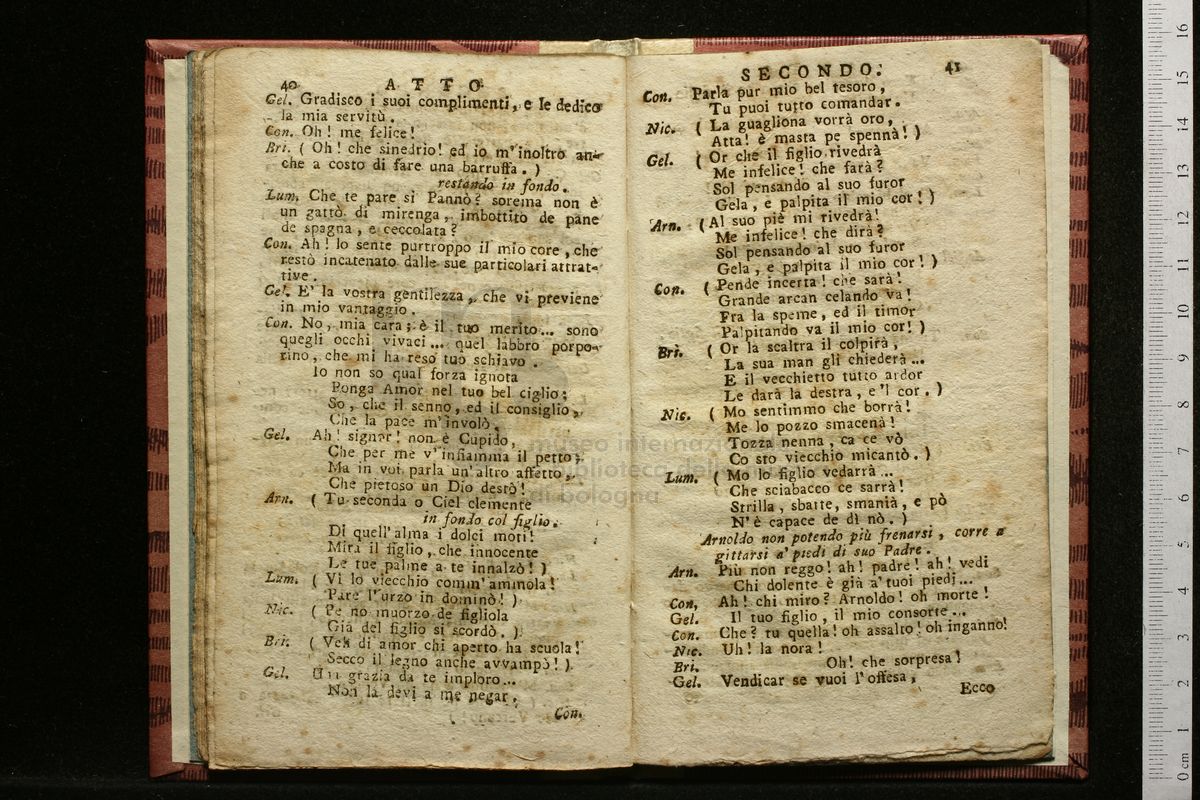 40 ATTO
Gel. Gradisco i suoi complimenti, e le dedico
la mia servitù.
Con. Oh! me felice!
Bri. ( Oh! che sinedrio! ed io m'inoltro an-
che a costo di fare una baruffa. )
restando in fondo.
Lum. Che te pare si Pannò? sorema non è
un gattò di mirenga, imbottito de pane
de spagna, e ceccolata?
Con. Ah! lo sente purtroppo il mio core, che
restò incatenato dalle sue particolari attrat-
tive.
Gel. E' la vostra gentilezza, che vi previene
in mio vantaggio.
Con. No, mia cara; è il tuo merito... sono
quegli occhi vivaci... quel labbro porpo-
rino, che mi ha reso tuo schiavo.
Io non so qual forza ignota
Ponga Amor nel tuo bel ciglio:
So, che il senno, ed il consiglio,
Che la pace m'involò.
Gel. Ah! signor! non è Cupido,
Che per me v'infiamma il petto;
Ma in voi parla un'altro affetto,
Che pietoso un Dio destò!
Arn. ( Tu seconda o Ciel clemente
in fondo col figlio.
Di quell'alma i dolci moti!
Mira il figlio, che innocente
Le tue palme a te innalzò! )
Lum. ( Vi lo viecchio comm'ammola!
Pare l'urzo in dominò! )
Nic. ( Pe no muorzo de figliola
Già del figlio si scordò. )
Bri. ( Ve' di amor chi aperto ha scuola!
Secco il legno anche avvampò! )
Gel. Una grazia da te imploro...
Non la devi a me negar.
Con.
SECONDO. 41
Con. Parla pur mio bel tesoro,
Tu puoi tutto comandar.
Nic. ( La guagliona vorrà oro,
Atta! è masta pe spennà! )
Gel. ( Or che il figlio rivedrà
Me infelice! che farà?
Sol pensando al suo furor
Gela, e palpita il mio cor! )
Arn. ( Al suo piè mi rivedrà!
Me infelice! che dirà?
Sol pensando al suo furor
Gela, e palpita il mio cor! )
Con. ( Pende incerta! che sarà!
Grande arcan celando va!
Fra la speme, ed il timor
Palpitando va il mio cor! )
Bri. ( Or la scaltra il colpirà,
La sua man gli chiederà...
E il vecchietto tutto ardor
Le darà la destra, e 'l cor. )
Nic. ( Mo sentimmo che borrà!
Me lo pozzo smacenà!
Tozza nenna, ca ce vò
Co sto viecchio micantò. )
Lum. ( Mo lo figlio vedarrà...
Che sciabacco ce sarrà!
Strilla, sbatte, smania, e pò
N'è capace de dì nò. )
Arnoldo non potendo più frenarsi, corre a
gittarsi a' piedi di suo Padre.
Arn. Più non reggo! ah! padre! ah! vedi
Chi dolente è già a' tuoi piedi...
Con. Ah! chi miro? Arnoldo! oh morte!
Gel. Il tuo figlio, il mio consorte...
Con. Che? tu quella! oh assalto! oh inganno!
Nic. Uh! la nora!
Bri. Oh! che sorpresa!
Gel. Vendicar se vuoi l'offesa,
Ecco
museo internazi
biblioteca della
di bologna
0 cm 1 2 3 4 5 6 7 8 9 10 11 12 13 14 15 16